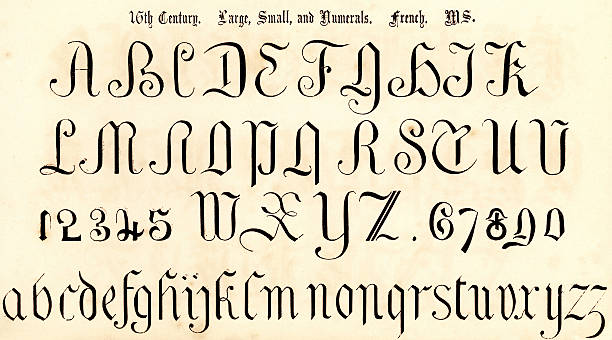 16th Century. Large, Small, and Numerals. French. MS.
A B C D E F G H I K
L M N O P Q R S T U V
1 2 3 4 5 W X Y Z . 6 7 8 9 0
a b c d e f g h i j k l m n o p q r s t u v x y z z